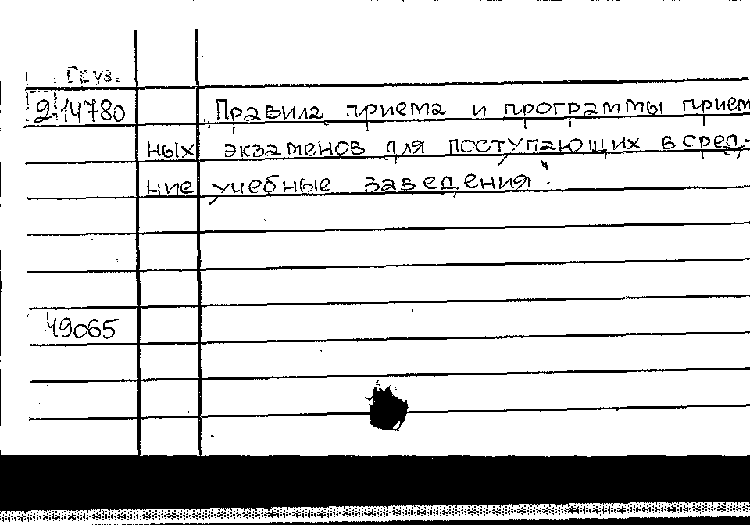 Груз.
2.14780 Правила приема и программы прием
ных экзаменов для поступающих в сред-
ние учебные заведения".
49065